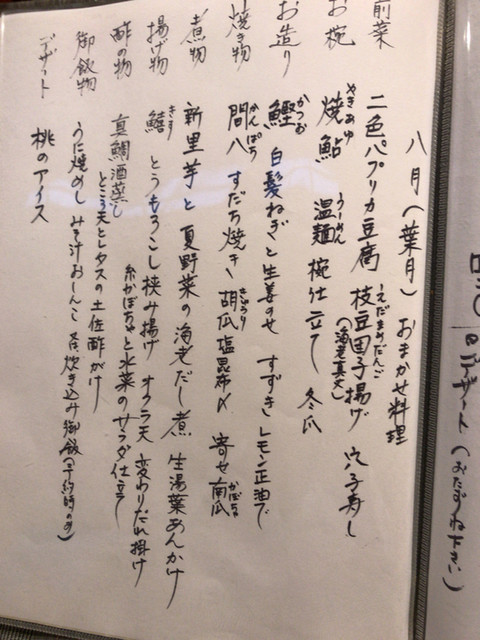 八月(葉月) おまかせ料理
前菜 二色パプリカ豆腐 枝豆団子揚げ 穴子寿し
えだまめだんご
(海老真丈)
お椀 焼鮎 温麺 椀仕立て 冬瓜
やきあゆ うーめん
お造り 鰹 白髪ねぎと生姜のせ すずきレモン正油で
かつお
焼き物 間八 すだち焼き 胡瓜塩昆布〆 寄せ南瓜
かんぱち きゅうり かぼちゃ
煮物 新里芋と夏野菜の海老だし煮 生湯葉あんかけ
揚げ物 鱚 とうもろこし挟み揚げ オクラ天 変わりだれ掛け
きす
酢の物 真鯛酒蒸し 糸かぼちゃと水菜のサラダ仕立て
ところ天とレタスの土佐酢がけ
御飯物 うに焼めし みそ汁 おしんこ 又は炊き込み御飯(予約時のみ)
デザート 桃のアイス